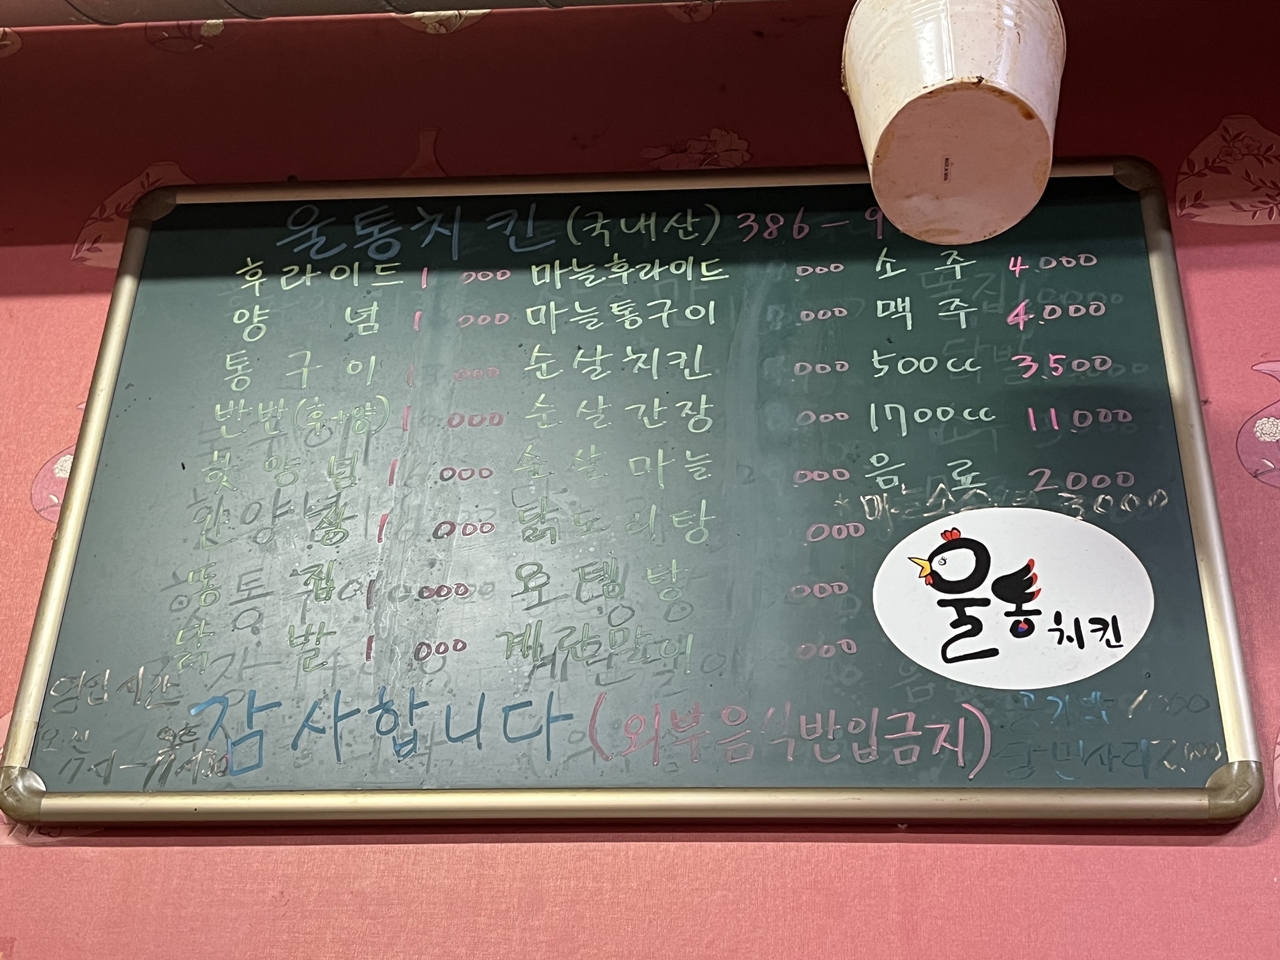 울통치킨 (국내산) 386-9
후라이드 1 000 마늘후라이드 000 소주 4.000
양념 1 000 마늘통구이 000 맥주 4.000
통구이 1 000 순살치킨 000 500cc 3.500
반반(후+양) 1 000 순살간장 000 1700cc 11.000
핫양념 1 .000 순살마늘 000 음료 2000
1 000 닭도리탕 000
똥집 1 000 오뎅탕 000
닭발 1 000 계란말이 000
울통치킨
영업시간
오전
감사합니다 (외부음식반입금지)
공기밥 1000
당면사리